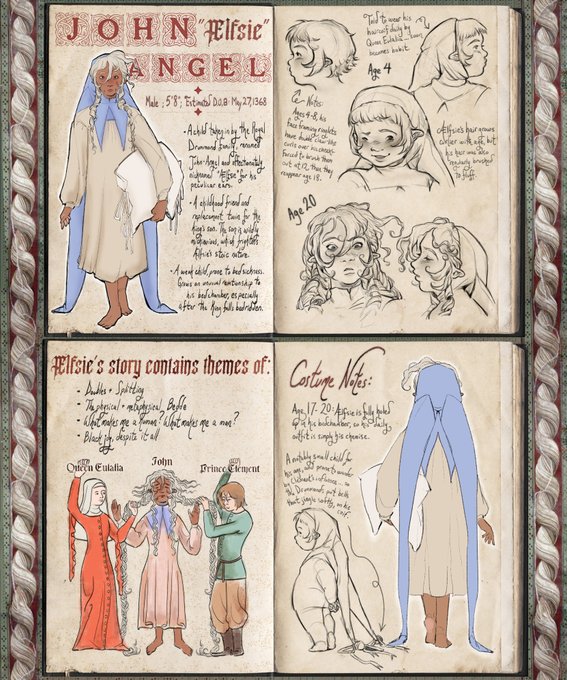 JOHN "Ælfsie"
ANGEL
Male ; 5'8" ; Estimated D.O.B: May 27, 1368
• A child taken in by the Royal
Drummond family, renamed
John Angel and affectionately
nicknamed "Ælfsie" for his
peculiar ears.
• A childhood friend and
replacement twin for the
King's son. The son is wildly
mischievous, which frightens
Ælfsie's stoic nature.
• A weak child, prone to bedsickness.
Grows an unusual relationship to
his bedchamber, especially
after the King falls bedridden.
Tied to wear his
haircoif daily by
Queen Eulalia... soon
becomes habit.
Age 4
Notes:
Ages 4-8, his
face framing ringlets
have double claw-like
curls over his cheeks.
Forced to brush them
out at 12, then they
reappear age 18.
Ælfsie's hair grows
curlier with age, but
his hair was also
regularly brushed
to fluff.
Age 20
Ælfsie's story contains themes of:
- Doubles + Splitting
- The physical + metaphysical Bedde
- What makes me a human? What makes me a man?
- Black joy, despite it all
Queen Eulalia
John
Prince Clement
Costume Notes:
Age 17-20: Ælfsie is fully holed
up in his bedchamber, so his daily
outfit is simply his chemise.
A notably small child for
his age, and prone to wander
by
the Drummonds put bells
that jingle softly on his
coif.